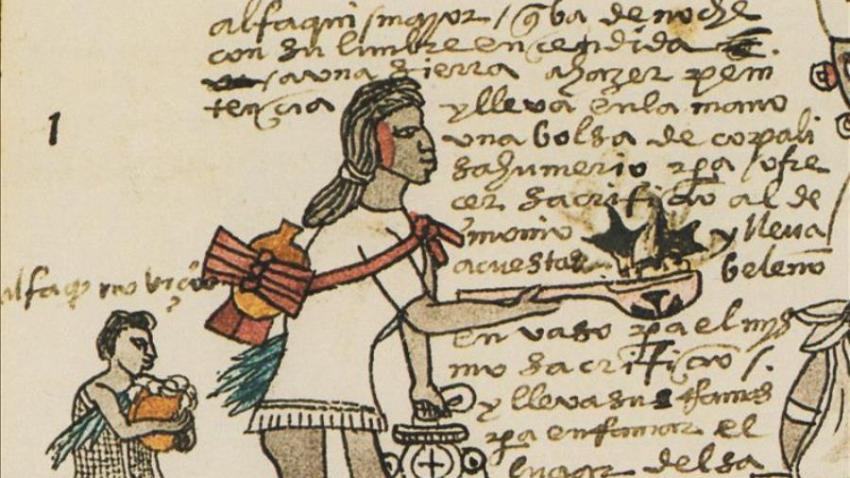 alfaqui mayor / q̄ va de noche
con su lumbre encendida
a una sierra a hazer peni
tençia
y lleva en la mano
una bolsa de copali
sahumerio pa / ofre
çer sacrifiçio al de
monio y lleva
acuestas beleño
en vaso pa el mis
mo sacrifiçio /.
y lleva sus
pa enfamar el
lugar del sa
1
alfaq novçio